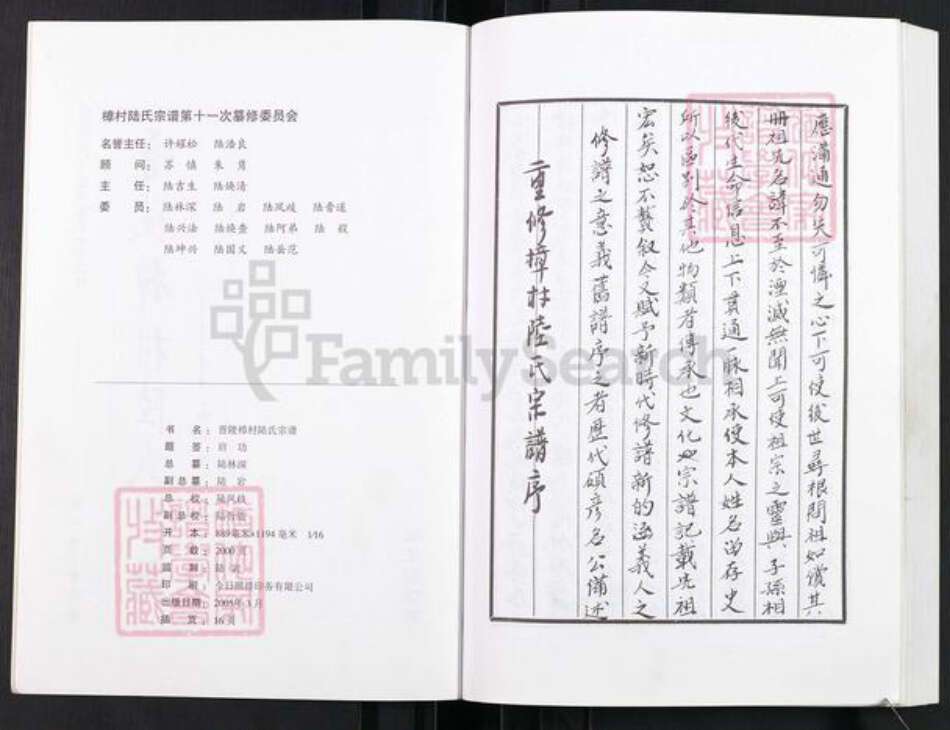 樟村陆氏宗谱第十一次纂修委员会
名誉主任： 许耀松 陆浩良
顾 问： 苏 慎 朱 勇
主 任： 陆吉生 陆焕清
委 员： 陆林深 陆 岩 陆凤歧
陆兴法 陆阿弟
陆坤兴 陆国义 陆岳范
书 名：晋陵樟村陆氏宗谱
题 签：启 功
总 纂：陆林深
副总纂：陆 岩
总 校：陆凤歧
副总校：
开 本：889毫米×1194毫米 1/16
页 数：2000页
印 刷：今日照排印务有限公司
出版日期：2005年3月
插 页：16页
FamilySearch
二重修樟村陸氏宗譜序
修譜之意義舊譜序之者歷代碩彥名公備述
宏矣恕不贅叙今又賦予新時代修譜新的涵義人之
所以區别於其他物類者傳承也文化也宗譜記載先祖
後代生命信息上下貫通一脉相承使本人姓名留存史
册祖先名諱不至於湮滅無聞上可使祖宗之靈與子孫相
應滿通勿失可憐之心下可使後世尋根問祖如償其